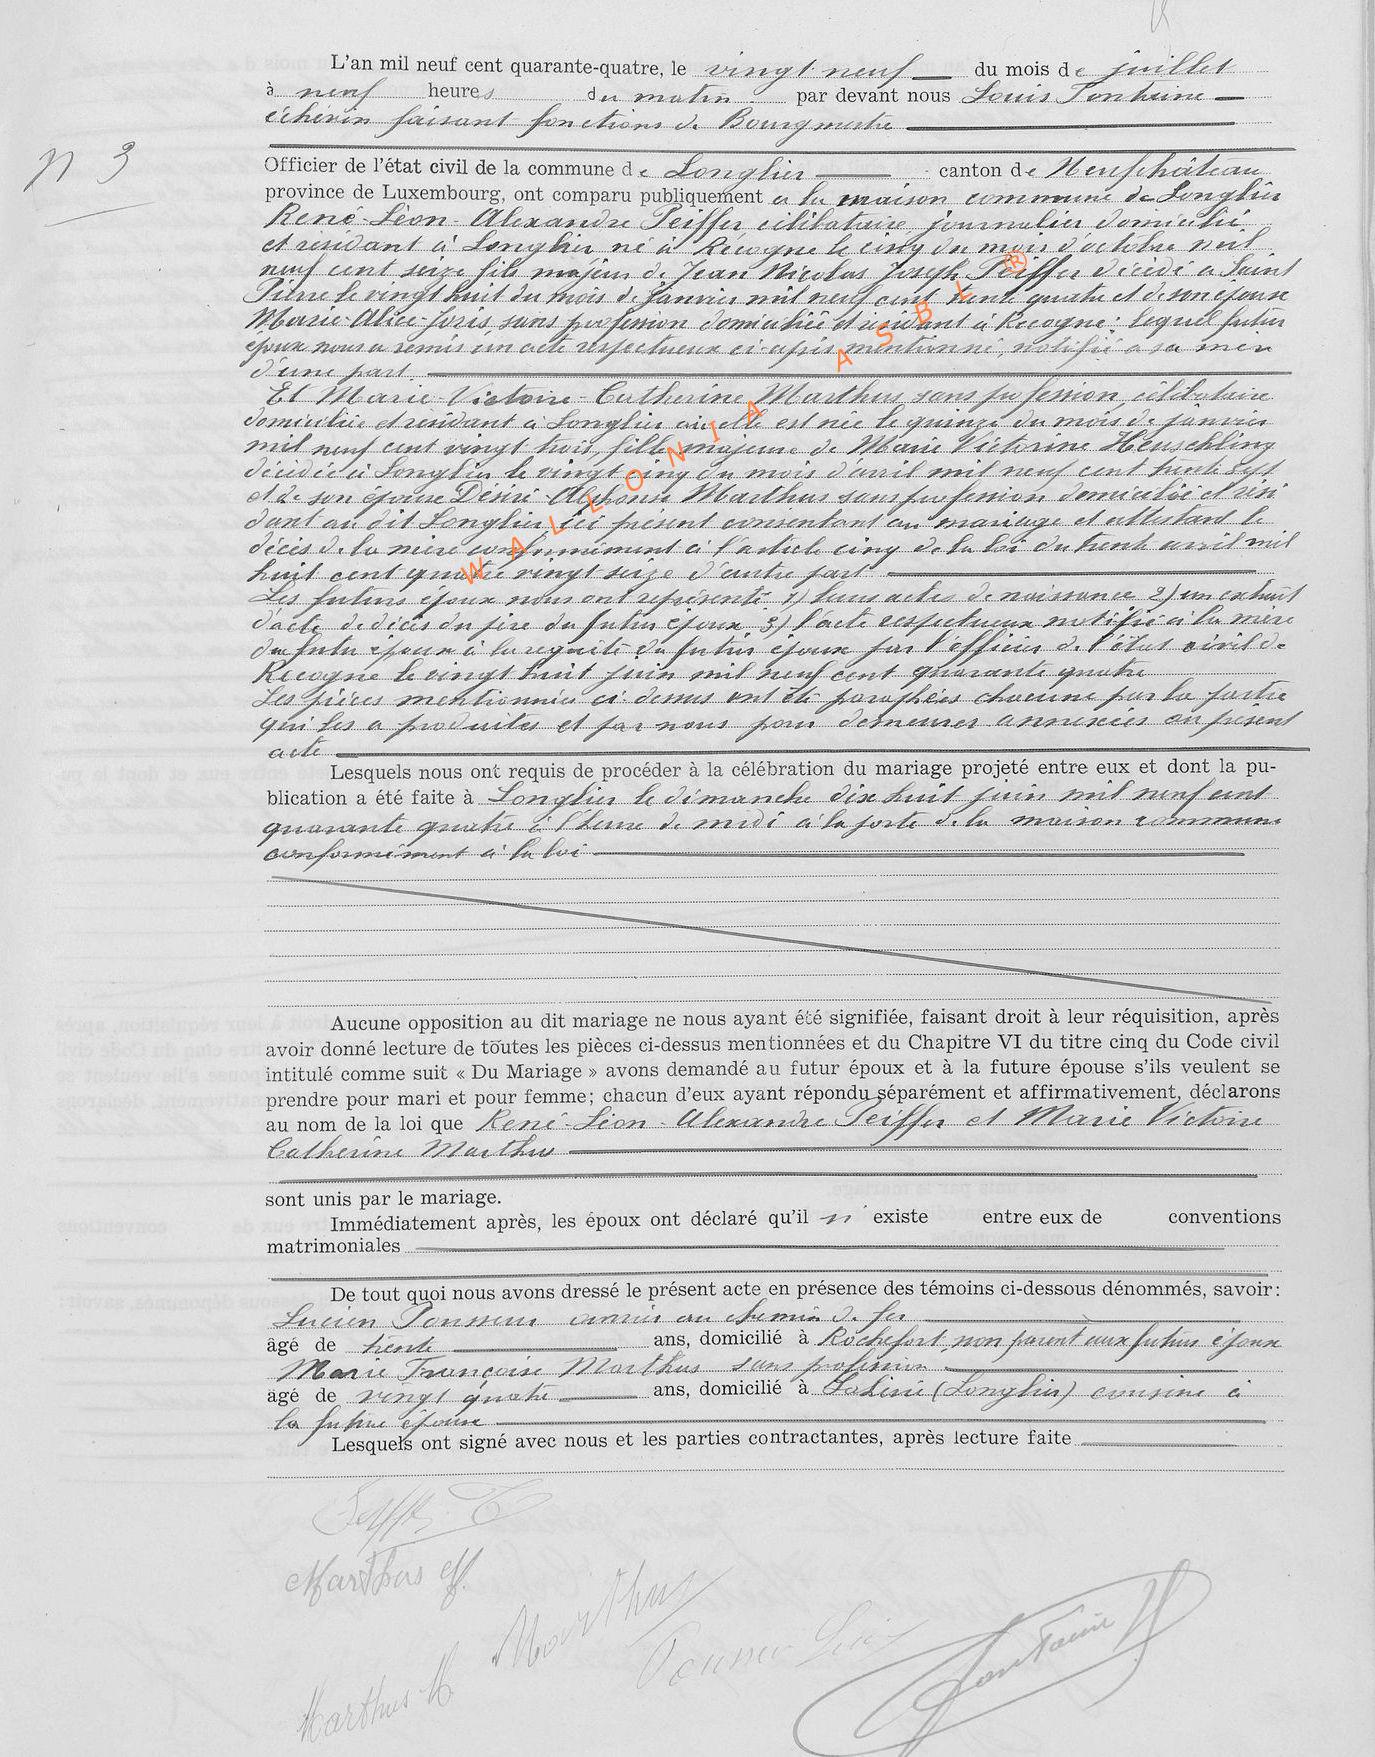 L'an mil neuf cent quarante-quatre, le vingt neuf du mois de juillet
à neuf heures du matin par devant nous Louis Fontaine
échevin faisant fonctions de Bourgmestre
N 3
Officier de l'état civil de la commune de Longlier canton de Neufchâteau
province de Luxembourg, ont comparu publiquement a la maison commune de Longlier
René-Léon-Alexandre Peiffer célibataire, journalier domicilié
et résidant à Longlier né à Recogne le cinq du mois d'octobre mil
neuf cent seize fils majeur de Jean Nicolas Joseph Peiffer décédé a Saint
Pierre le vingt huit du mois de janvier mil neuf cent trente quatre et de son épouse
Marie-Alice-Joris, sans profession domiciliée et résidant à Recogne; lequel futur
époux nous a remis un acte respectueux ci-après mentionné, notifié a sa mère
d'une part.
Et Marie-Victoire-Catherine Marthus sans profession, célibataire
domiciliée et résidant à Longlier où elle est née le quinze du mois de janvier
mil neuf cent vingt trois, fille majeure de Marie Victorine Heuschling
décédée à Longlier le vingt cinq du mois d'avril mil neuf cent trente sept
et de son épouse Désiré Alphonse Marthus sans profession domicilié et rési
dant au dit Longlier, ici présent consentant au mariage et attestant le
décès de la mère conformément à l'article cinq de la loi du trente avril mil
huit cent quatre vingt seize d'autre part
Les futurs époux nous ont représenté 1) leurs actes de naissance 2) un extrait
d'acte de décès du père du futur époux 3) l'acte respectueux notifié à la mère
du futur époux à la requête du futur époux par l'officier de l'état civil de
Recogne le vingt huit juin mil neuf cent quarante quatre
Les pièces mentionnées ci-dessus ont été paraphées chacune par la partie
qui les a produites et par nous pour demeurer annexées au présent
acte
Lesquels nous ont requis de procéder à la célébration du mariage projeté entre eux et dont la pu-
blication a été faite à Longlier le dimanche dix huit juin mil neuf cent
quarante quatre à l'heure de midi à la porte de la maison commune
conformément à la loi
Aucune opposition au dit mariage ne nous ayant été signifiée, faisant droit à leur réquisition, après
avoir donné lecture de toutes les pièces ci-dessus mentionnées et du Chapitre VI du titre cinq du Code civil
intitulé comme suit « Du Mariage » avons demandé au futur époux et à la future épouse s'ils veulent se
prendre pour mari et pour femme; chacun d'eux ayant répondu séparément et affirmativement, déclarons
au nom de la loi que René-Léon-Alexandre Peiffer et Marie Victoire
Catherine Marthus
sont unis par le mariage.
Immédiatement après, les époux ont déclaré qu'il n' existe entre eux de conventions
matrimoniales
De tout quoi nous avons dressé le présent acte en présence des témoins ci-dessous dénommés, savoir:
Lucien au chemin de fer
âgé de trente ans, domicilié à Rochefort, non parent aux futurs époux
Marie Françoise Marthus sans profession
âgé de vingt quatre ans, domicilié à (Longlier) cousine à
la future épouse
Lesquels ont signé avec nous et les parties contractantes, après lecture faite
Marthus M.
Marthus
Marthus M
Fontaine
WALLONIA ASBL ®